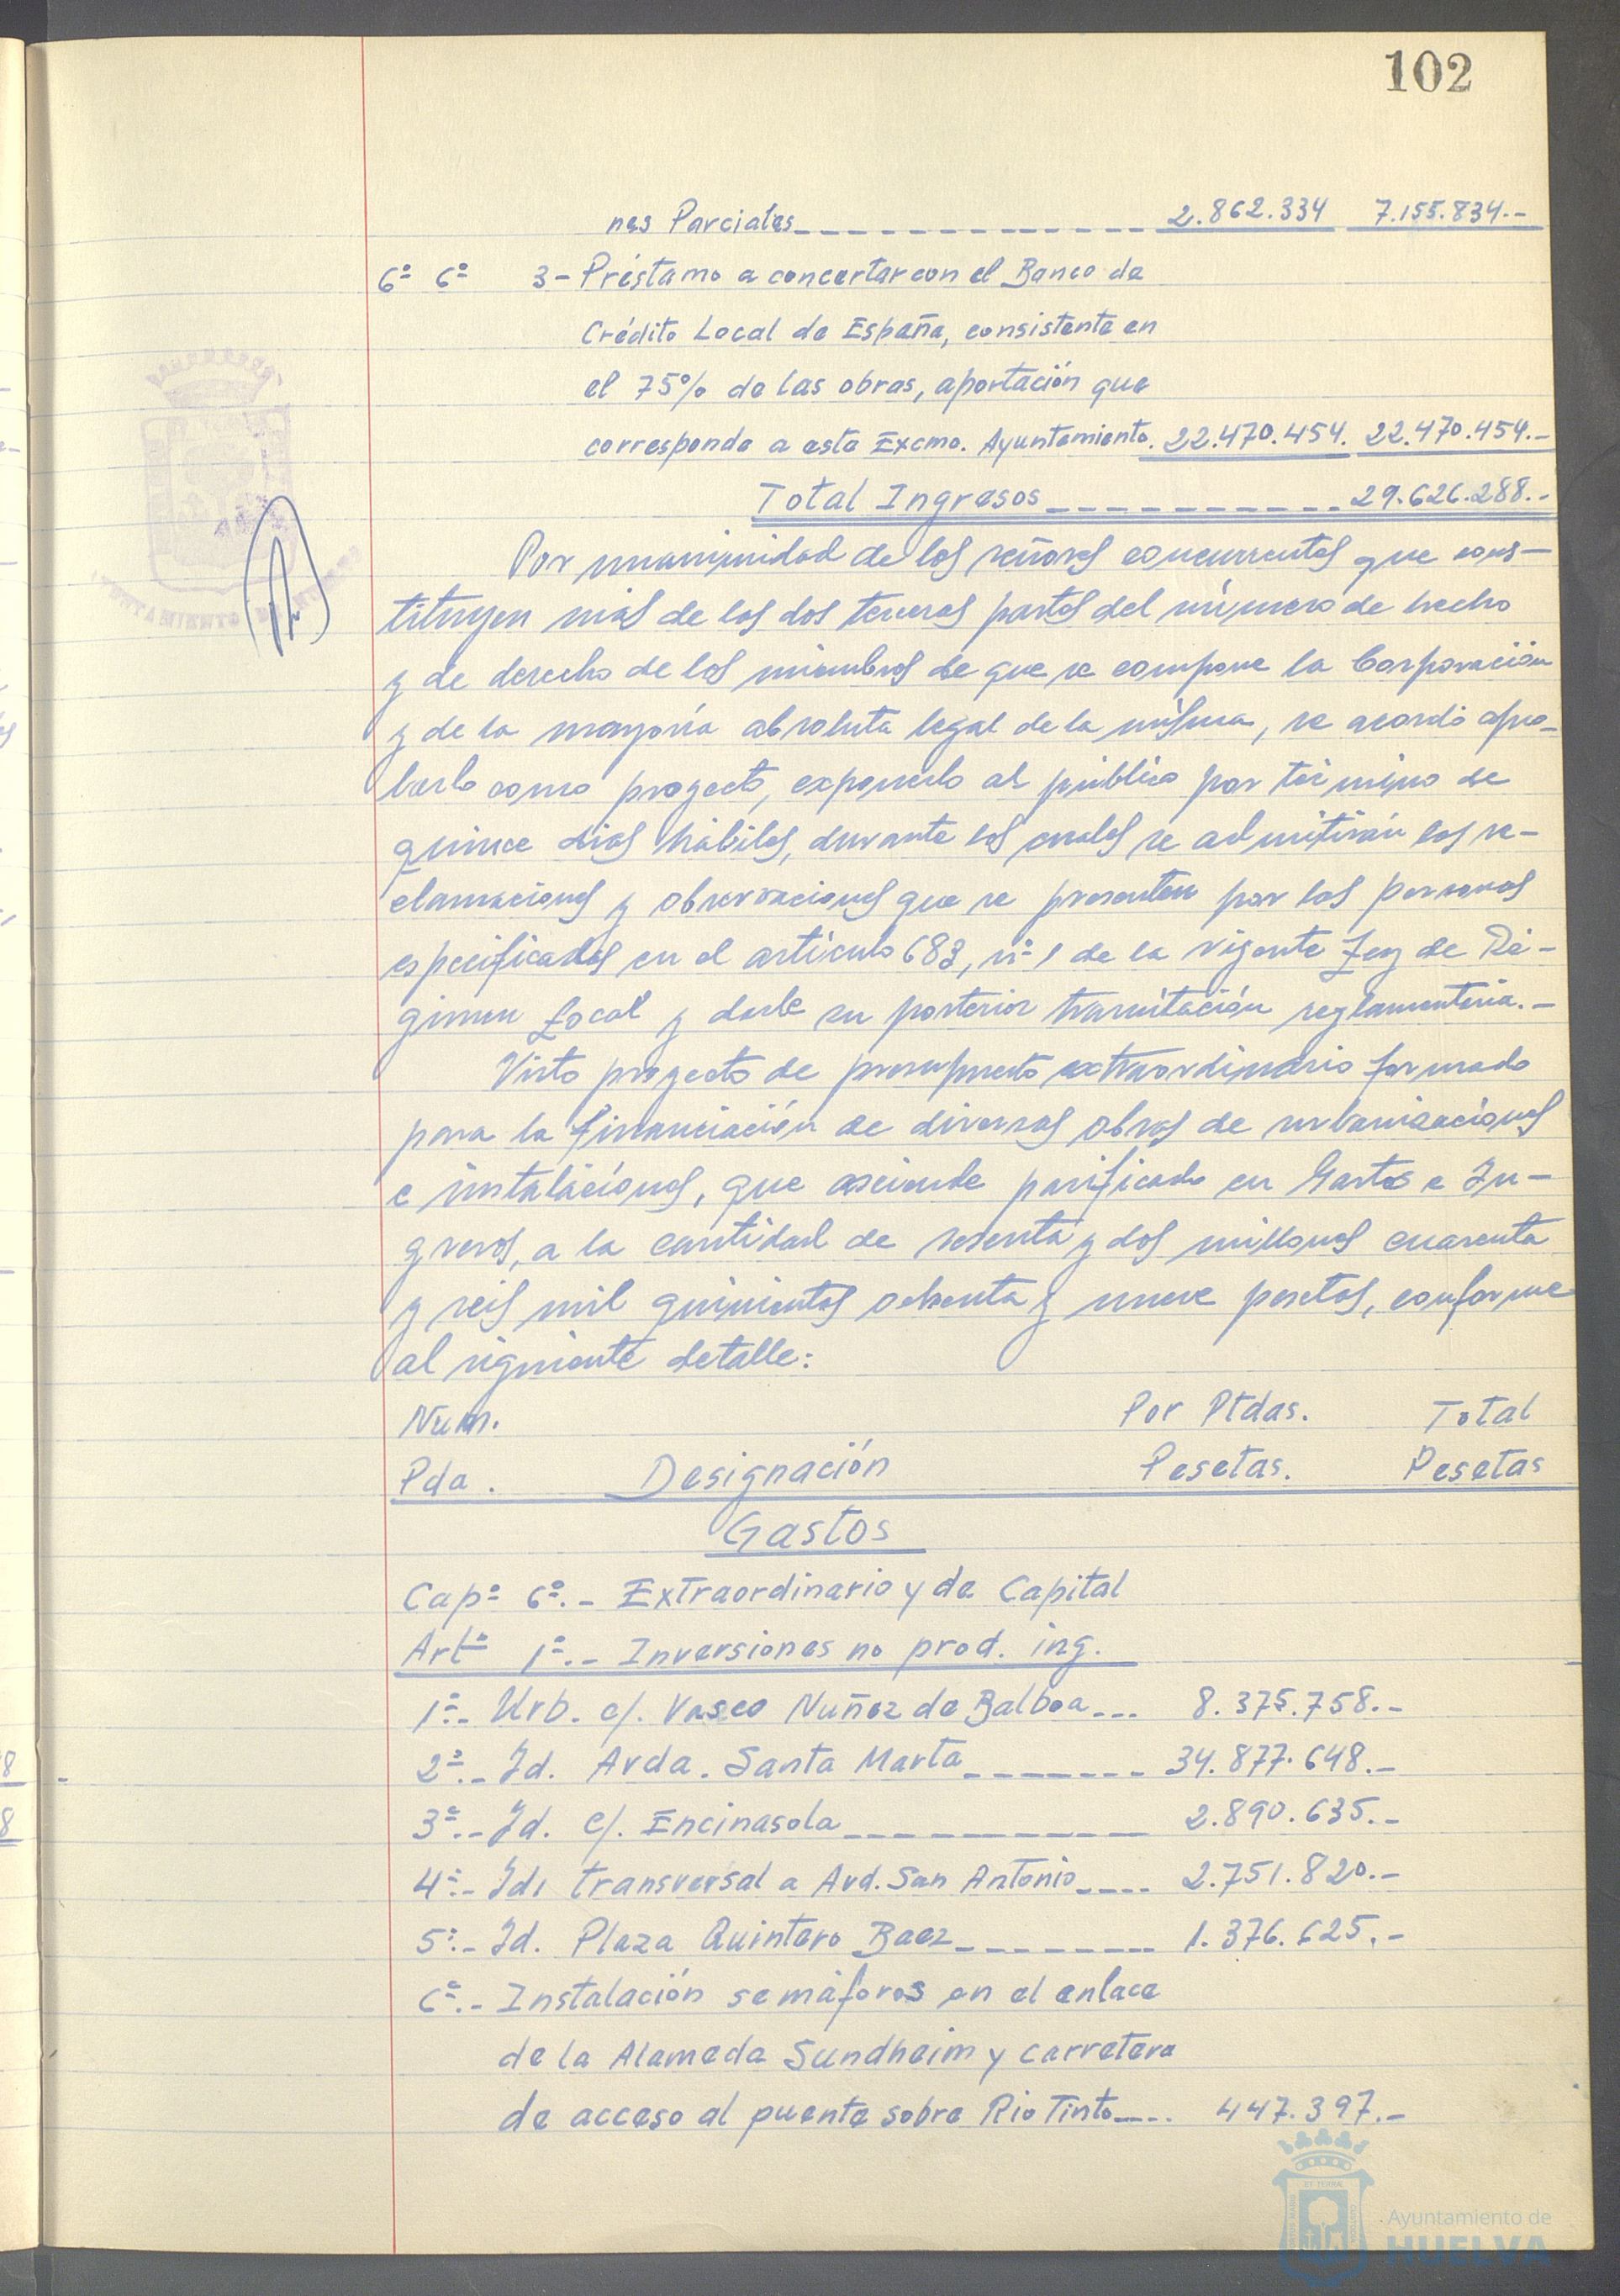 102
nes Parciales 2.862.334 7.155.834.-
6º 6º 3- Préstamo a concertar con el Banco de
Crédito Local de España, consistente en
el 75% de las obras, aportación que
corresponde a este Excmo. Ayuntamiento. 22.470.454. 22.470.454.-
Total Ingresos 29.626.288.-
Por unanimidad de los señores concurrentes que cons-
tituyen más de las dos terceras partes del número de hecho
y de derecho de los miembros de que se compone la Corporación
y de la mayoría absoluta legal de la misma, se acordó apro-
barlo como proyecto, exponerlo al público por término de
quince dias hábiles, durante los cuales se admitirán las re-
clamaciones y observaciones que se presenten por las personas
especificadas en el artículo 683, nº 1 de la vigente Ley de Ré-
gimen Local y darle su posterior tramitación reglamentaria.-
Visto proyecto de presupuesto extraordinario formado
para la financiación de diversas obras de urbanizaciones
e instalaciones, que asciende parificado en Gastos e In-
gresos, a la cantidad de sesenta y dos millones cuarenta
y seis mil quinientas ochenta y nueve pesetas, conforme
al siguiente detalle:
Num. Por Ptdas. Total
Pda. Designación Pesetas. Pesetas
Gastos
Capº 6º.- Extraordinario y de Capital
Artº 1º.- Inversiones no prod. ing.
1º.- Urb. c/. Vasco Nuñez de Balboa 8.375.758.-
2º.- Id. Avda. Santa Marta 34.877.648.-
3º.- Id. c/. Encinasola 2.890.635.-
4º.- Id. transversal a Avd. San Antonio 2.751.820.-
5º.- Id. Plaza Quintero Baez 1.376.625.-
6º.- Instalación semáforos en el enlace
de la Alameda Sundheim y carretera
de acceso al puente sobre Rio Tinto 447.397.-
Ayuntamiento de
HUELVA